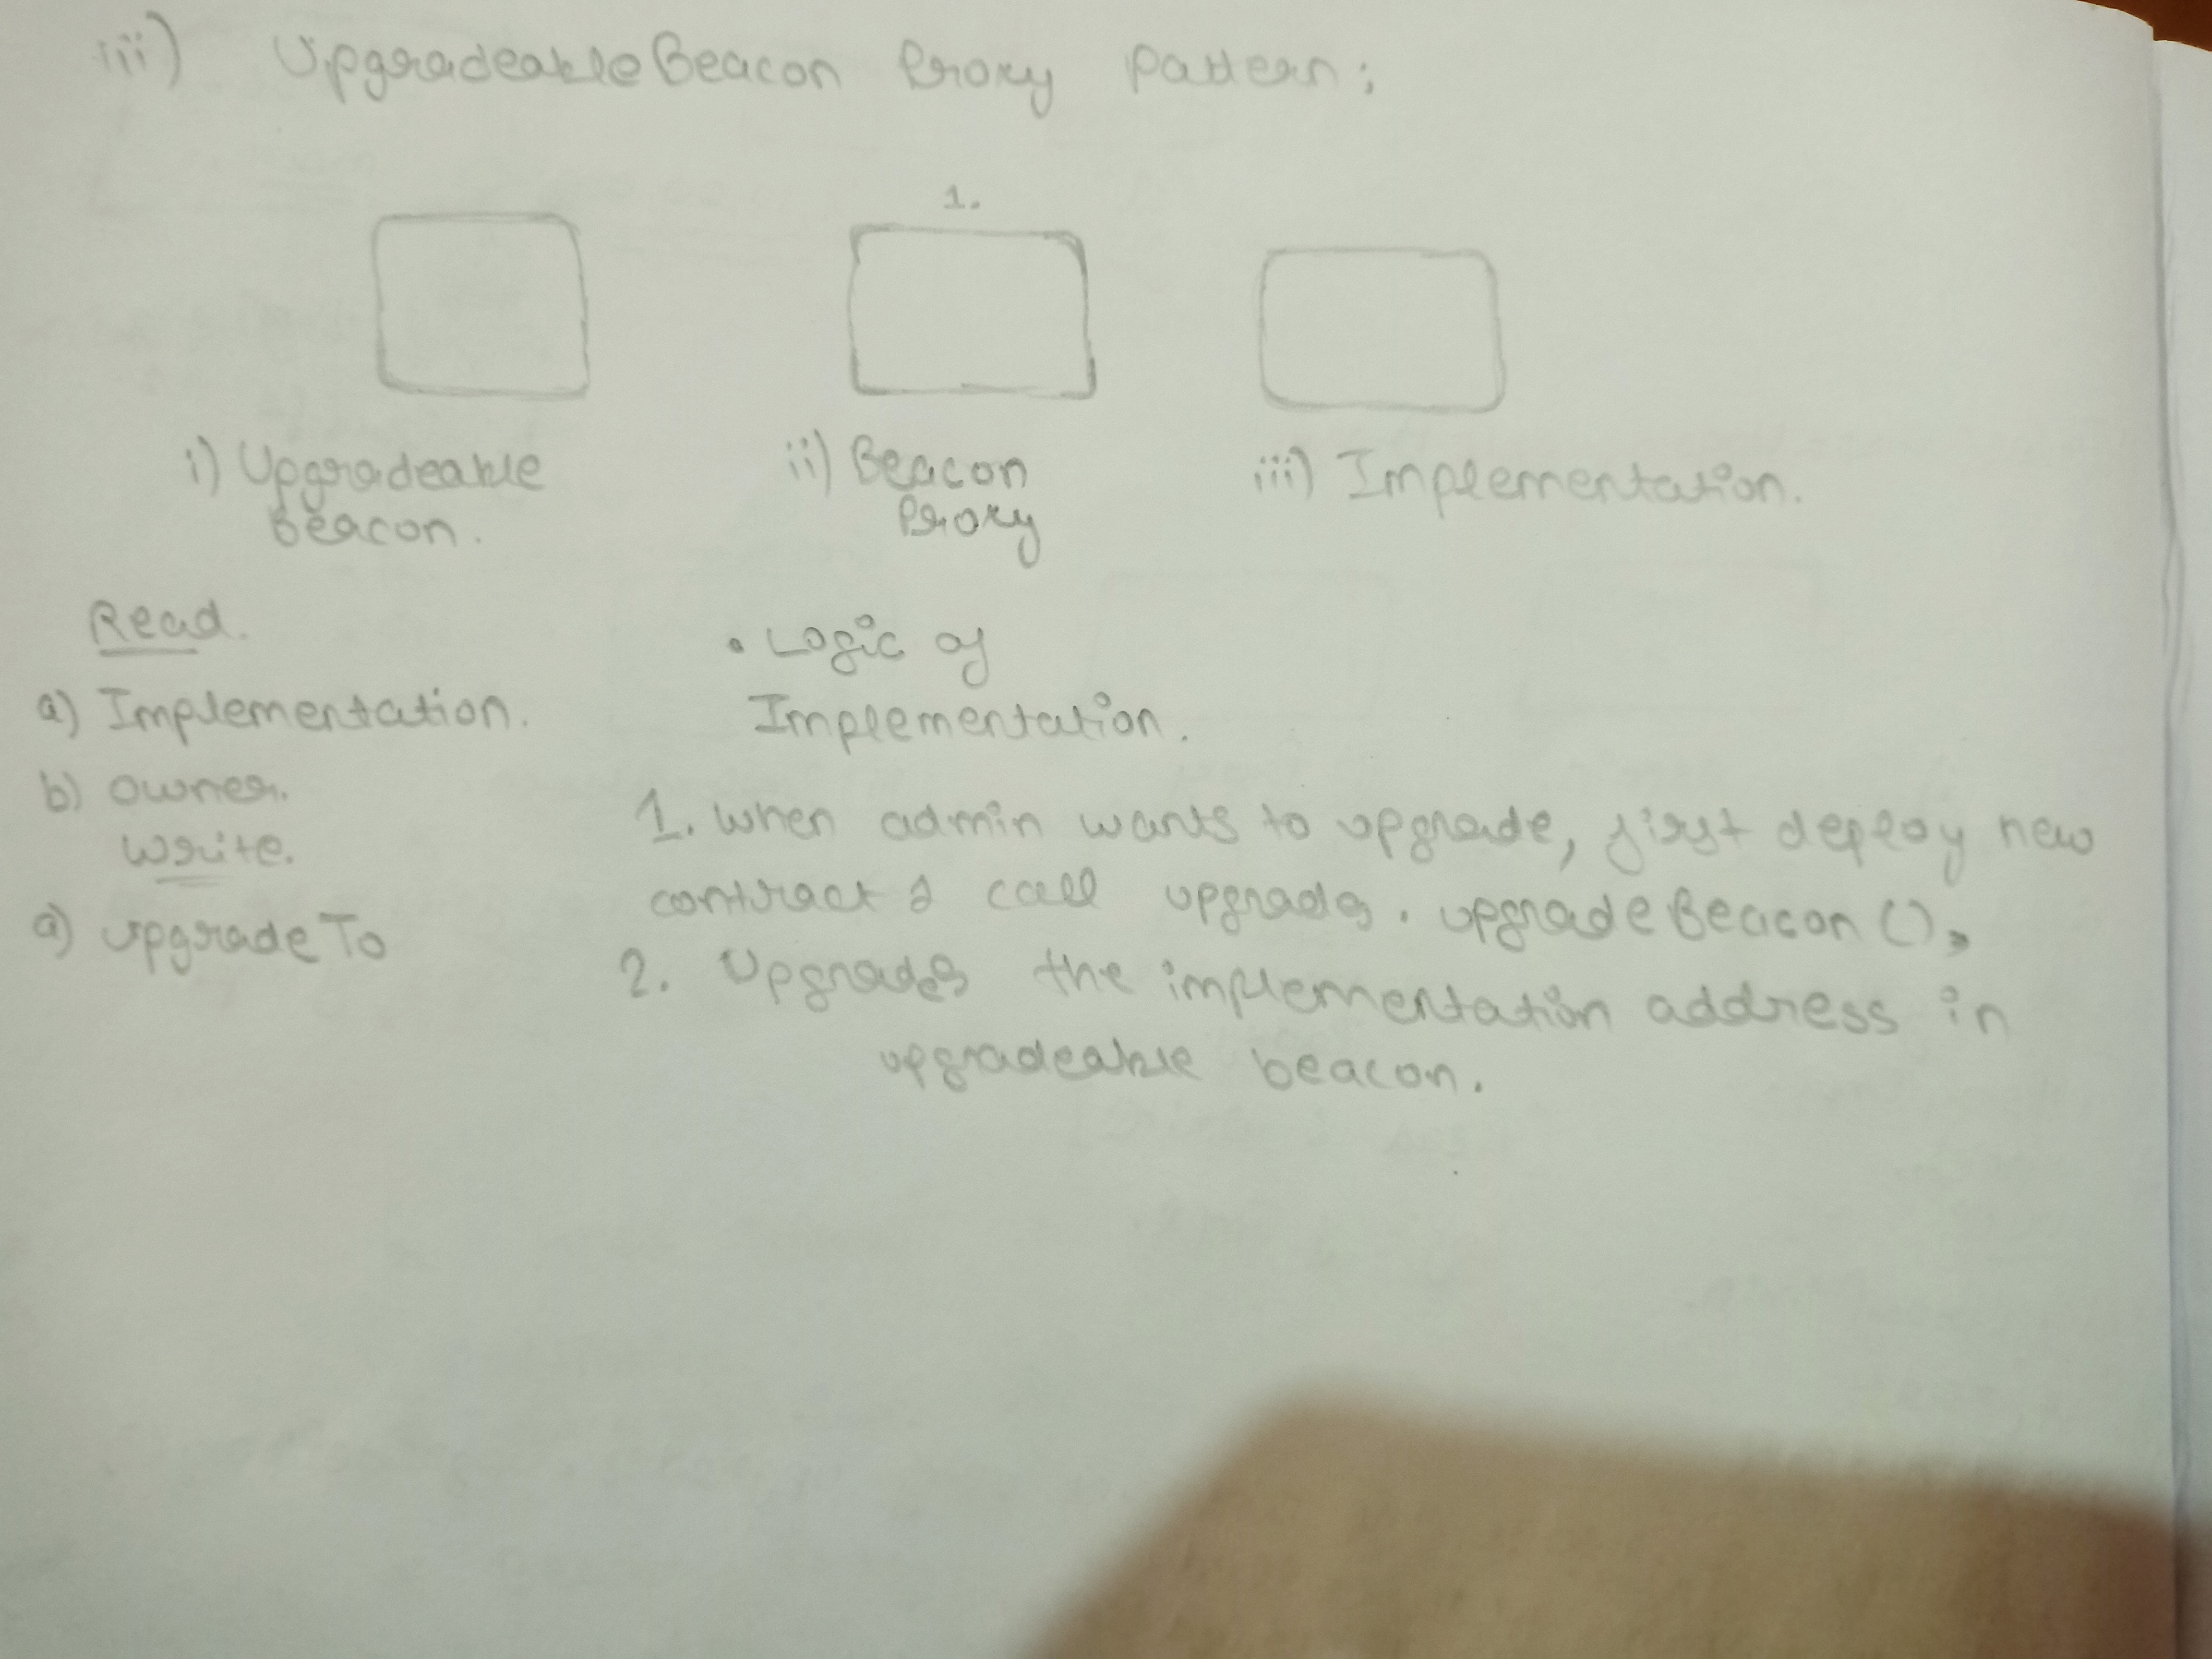 iii) UpgradeableBeacon Proxy Pattern;
1.
i) Upgradeable
Beacon.
ii) Beacon
Proxy
iii) Implementation.
Read.
a) Implementation.
b) Owner.
Write.
a) upgradeTo
• Logic of
Implementation.
1. When admin wants to upgrade, first deploy new
contract & call upgrades.upgradeBeacon(),
2. Upgrades the implementation address in
upgradeable beacon.